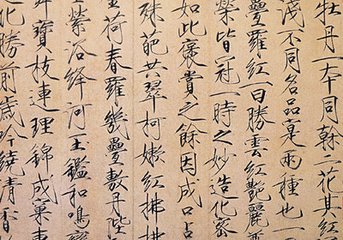 牡丹一本同榦二花其紅
淺不同名品是兩種也一
疊羅紅一曰勝雲紅艷麗
榮皆冠一時之妙造化密
如此褒賞之餘因成口占
殊葩共翠柯嫩紅拂拂
荷春羅幾疊敷丹陛
縈浴絳河玉鑑和鳴鸞
寶枝連理錦成窠東
化勝前歲吟繞清香